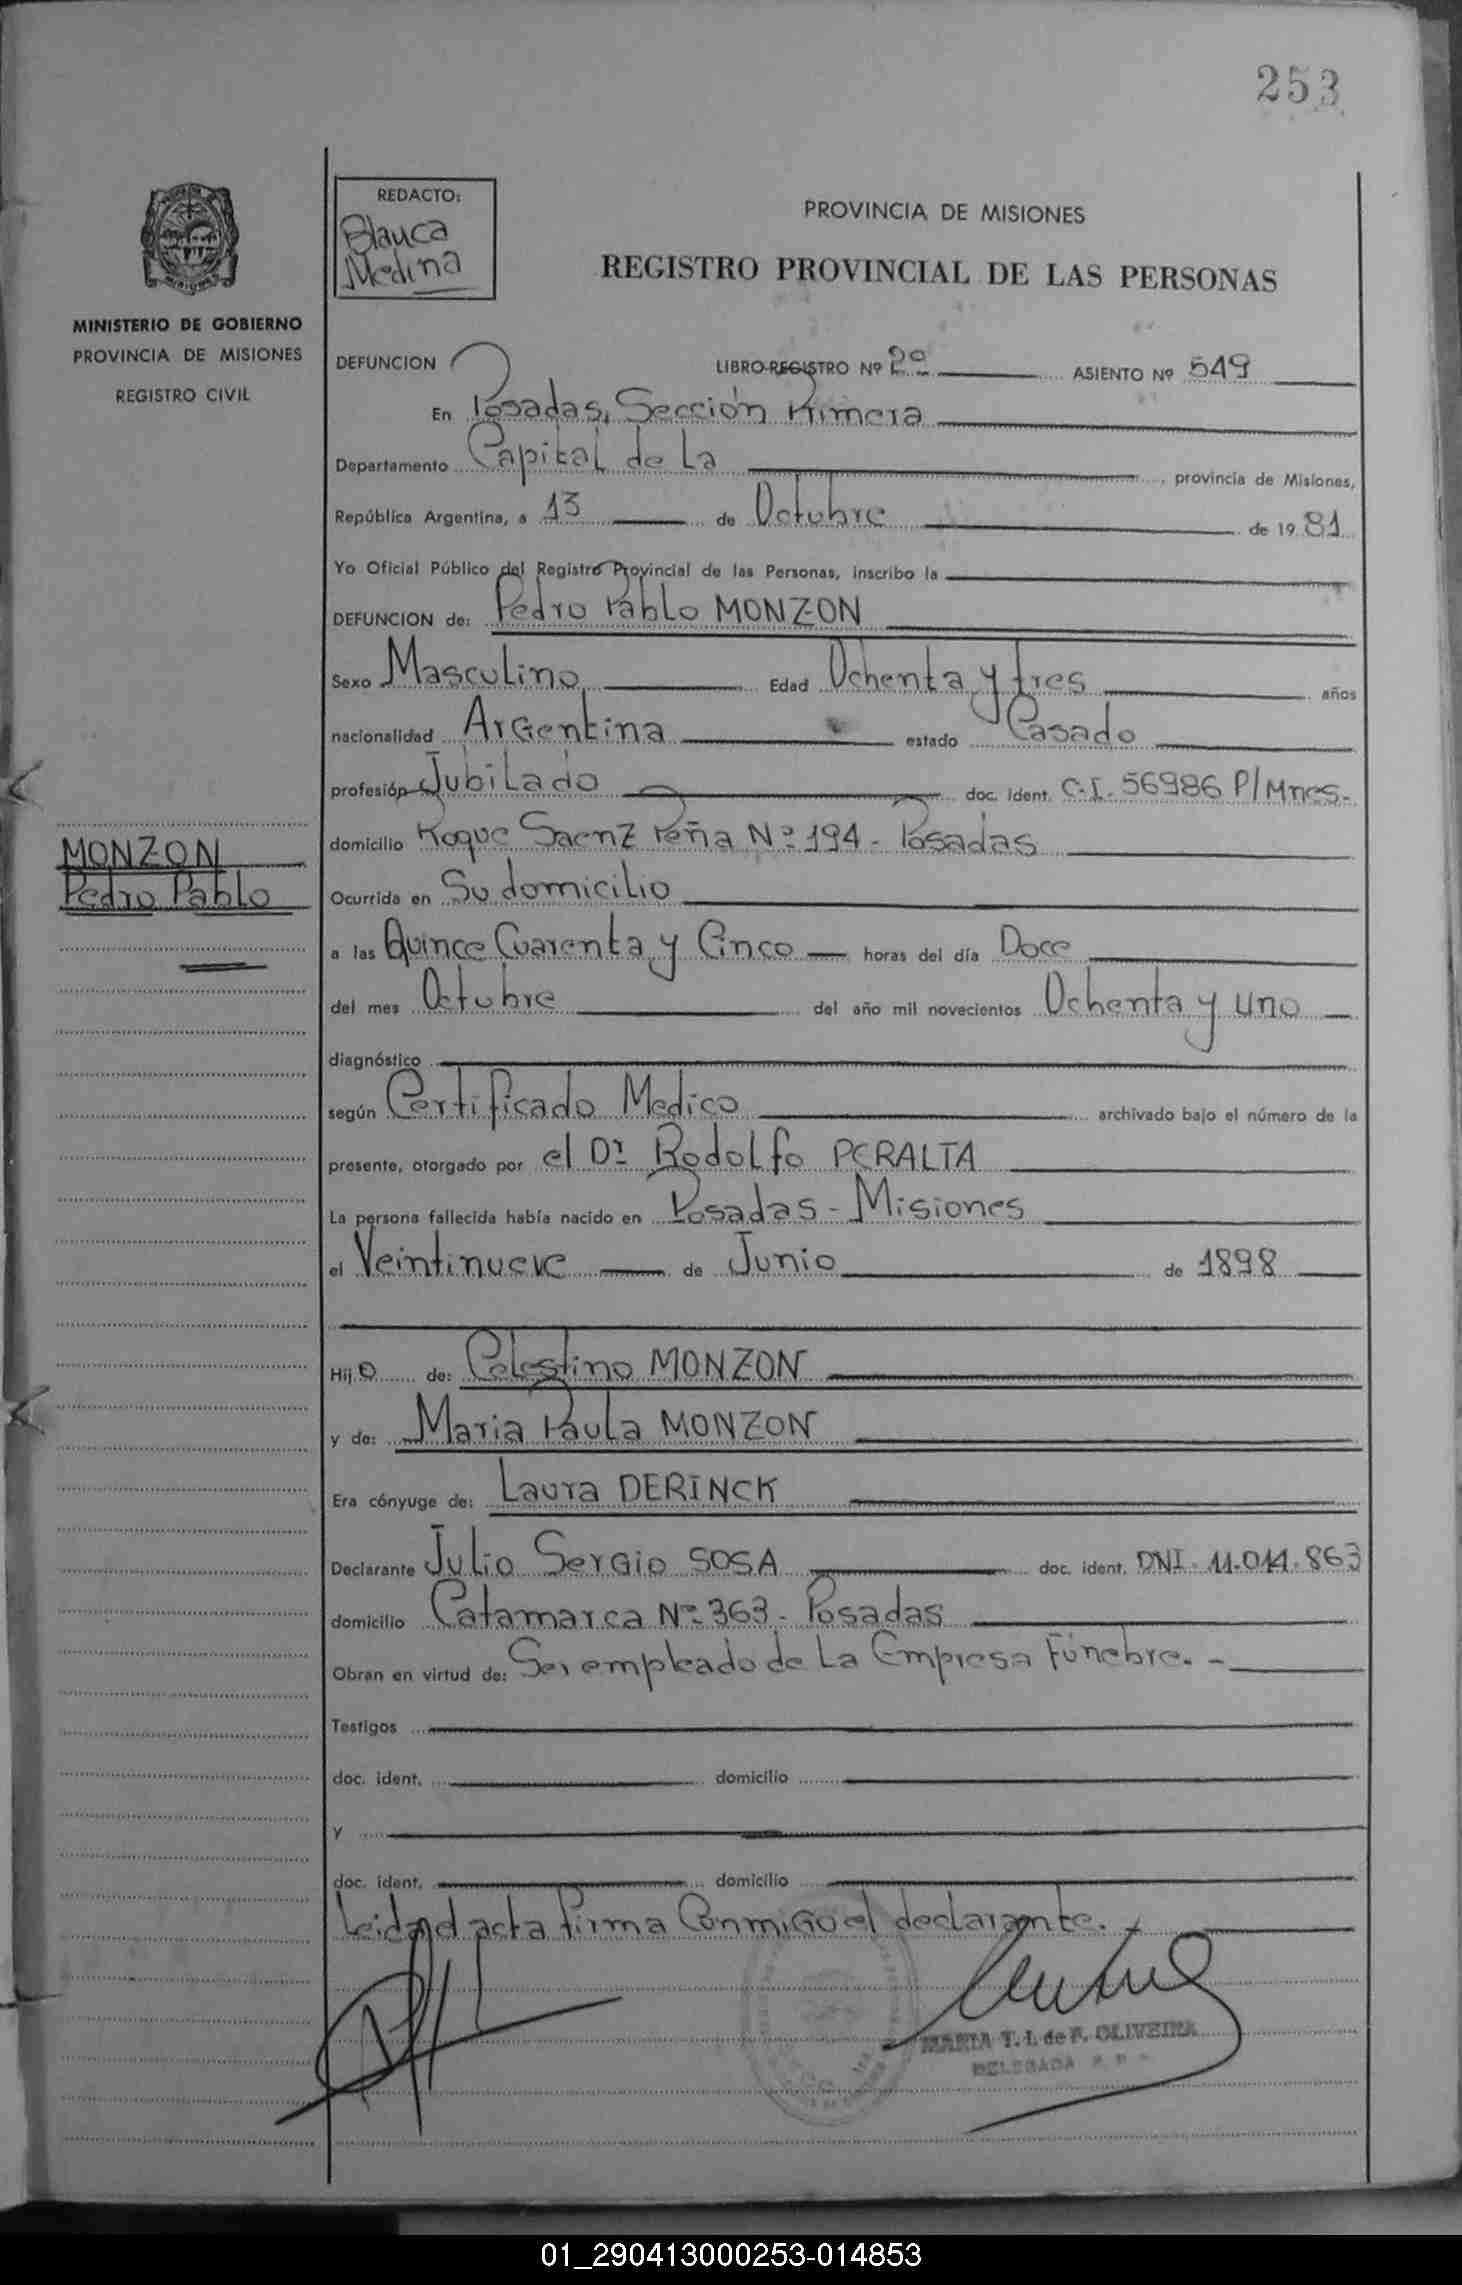 253
REDACTO:
Blanca
Medina
PROVINCIA DE MISIONES
REGISTRO PROVINCIAL DE LAS PERSONAS
MINISTERIO DE GOBIERNO
PROVINCIA DE MISIONES
REGISTRO CIVIL
DEFUNCION LIBRO-REGISTRO Nº 2º ASIENTO Nº 549
En Posadas, Sección Primera
Departamento Capital de La provincia de Misiones,
República Argentina, a 13 de Octubre de 1981
Yo Oficial Público del Registro Provincial de las Personas, inscribo la
DEFUNCION de: Pedro Pablo MONZON
Sexo Masculino Edad Ochenta y tres años
nacionalidad Argentina estado Casado
profesión Jubilado doc. ident. C.I. 56986 P/Mnes.
MONZON
Pedro Pablo
domicilio Roque Saenz Peña Nº 194 - Posadas
Ocurrida en Su domicilio
a las Quince Cuarenta y Cinco horas del día Doce
del mes Octubre del año mil novecientos Ochenta y uno
diagnóstico
según Certificado Medico archivado bajo el número de la
presente, otorgado por el Dr Rodolfo PERALTA
La persona fallecida había nacido en Posadas - Misiones
el Veintinueve de Junio de 1898
Hijo de: Celestino MONZON
y de: Maria Paula MONZON
Era cónyuge de: Laura DERINCK
Declarante Julio Sergio SOSA doc. ident. DNI. 11.014.863
domicilio Catamarca Nº 363 - Posadas
Obran en virtud de: Ser empleado de La Empresa Fúnebre. -
Testigos
doc. ident. domicilio
y
doc. ident. domicilio
Leida el acta firma Conmigo el declarante.
MARIA T. I. de F. OLIVEIRA
DELEGADA R. P.
01_290413000253-014853